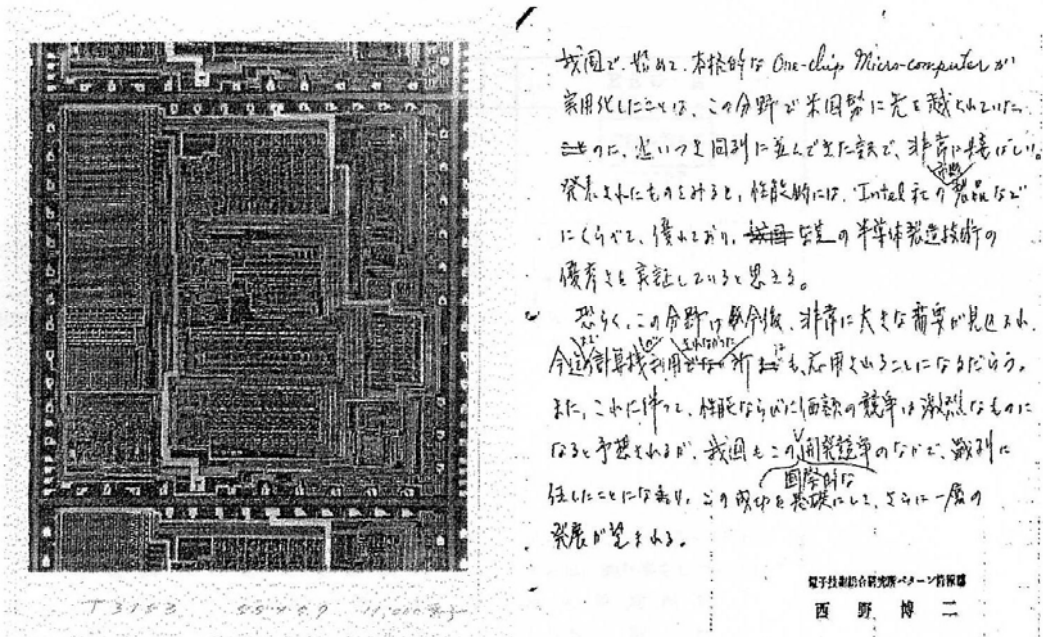 T3153 11,000素子
我国で、始めて、本格的な One-chip Micro-computer が
実用化したことは、この分野で米国勢に先を越されていた
のに、追いつき同列に並んできた訳で、非常に喜ばしい。
発表されたものをみると、性能的には、Intel社の製品など
にくらべて、優れており、の半導体製造技術の
優秀さを実証していると思える。
恐らく、この分野は今後、非常に大きな需要が見込まれ、
今まで計算機が利用されなかった所にも、応用されることになるだろう。
また、これに伴って、性能ならびに価額の競争は激烈なものに
なると予想されるが、我国もこの開発競争のなかで、戦列に
国際的な
伍したことになり、この成功を基礎にして、さらに一層の
発展が望まれる。
電子技術総合研究所パターン情報部
西野博二